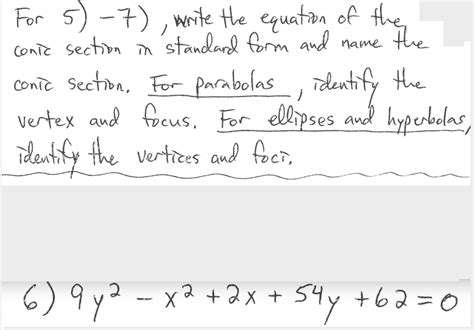 For 5) - 7), write the equation of the
conic section in standard form and name the
conic section. For parabolas, identify the
vertex and focus. For ellipses and hyperbolas,
identify the vertices and foci.
6) 9y² - x² + 2x + 54y + 62 = 0